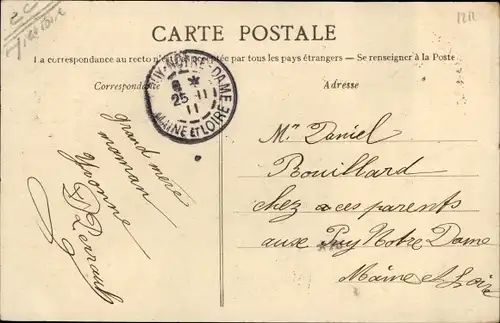 CARTE POSTALE
La correspondance au recto n'est pas acceptée par tous les pays étrangers — Se renseigner à la Poste
Correspondance
Adresse
PUY-NOTRE-DAME
*
25 - 11
11
MAINE ET LOIRE
Grand mère
maman
Yvonne
D Perrault
Mr Daniel
Rouillard
chez a ces parents
aux Puy Notre Dame
Maine et Loire